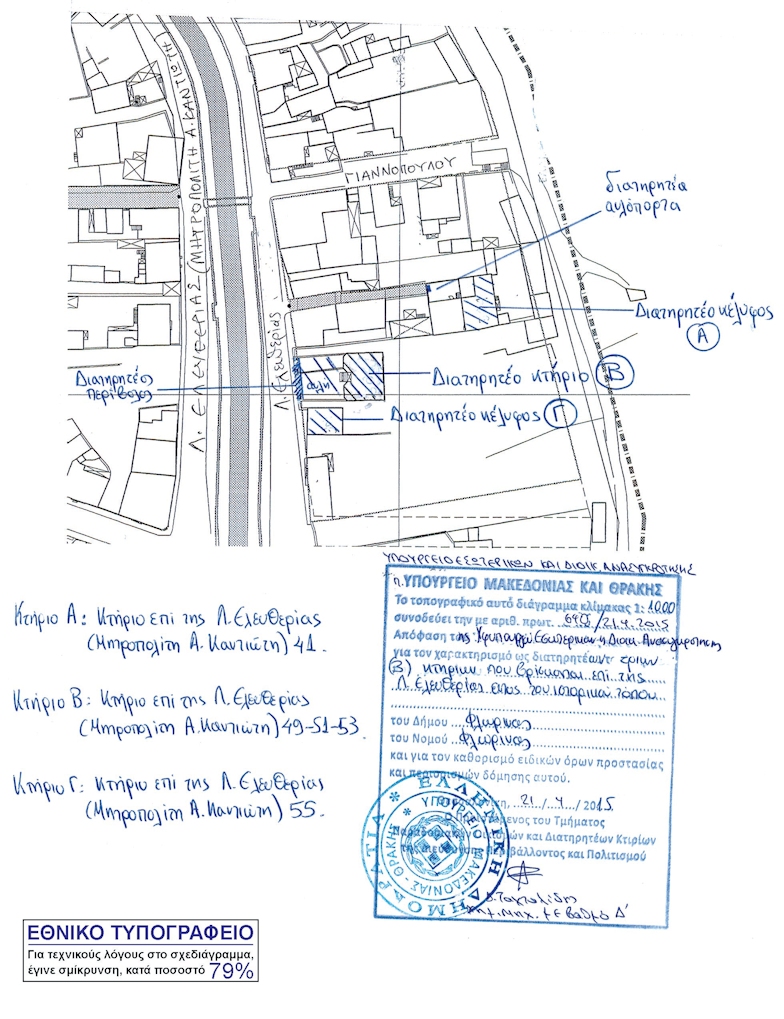 Λ. ΕΛΕΥΘΕΡΙΑΣ (ΜΗΤΡΟΠΟΛΙΤΗ Α. ΚΑΝΤΙΩΤΗ)
ΓΙΑΝΝΟΠΟΥΛΟΥ
διατηρητέα
αυλόπορτα
Λ. Ελευθερίας
Διατηρητέο κέλυφος
Α
Διατηρητέος
περίβολος
αυλή
Διατηρητέο κτήριο Β
Διατηρητέο κέλυφος Γ
ΥΠΟΥΡΓΕΙΟ ΕΣΩΤΕΡΙΚΩΝ ΚΑΙ ΔΙΟΙΚ. ΑΝΑΣΥΓΚΡΟΤΗΣΗΣ
π. ΥΠΟΥΡΓΕΙΟ ΜΑΚΕΔΟΝΙΑΣ ΚΑΙ ΘΡΑΚΗΣ
Το τοπογραφικό αυτό διάγραμμα κλίμακας 1: 1000
συνοδεύει την με αριθ. πρωτ. /21.4.2015
Απόφαση της Εσωτερικών & Διοικ. Ανασυγκρότησης
για τον χαρακτηρισμό ως διατηρητέων τριών
(3) κτηρίων που βρίσκονται επί της
Λ. Ελευθερίας εντός του ιστορικού τόπου
του Δήμου Φλώρινας
του Νομού Φλώρινας
και για τον καθορισμό ειδικών όρων προστασίας
και περιορισμών δόμησης αυτού.
21/4/2015
Ο Προϊστάμενος του Τμήματος
Παραδοσιακών Οικισμών και Διατηρητέων Κτιρίων
της Διεύθυνσης Περιβάλλοντος και Πολιτισμού
ΕΛΛΗΝΙΚΗ ΔΗΜΟΚΡΑΤΙΑ
ΥΠΟΥΡΓΕΙΟ ΜΑΚΕΔΟΝΙΑΣ - ΘΡΑΚΗΣ
με βαθμό Δ'
Κτήριο Α: Κτήριο επί της Λ. Ελευθερίας
(Μητροπολίτη Α. Καντιώτη) 41.
Κτήριο Β: Κτήριο επί της Λ. Ελευθερίας
(Μητροπολίτη Α. Καντιώτη) 49-51-53.
Κτήριο Γ: Κτήριο επί της Λ. Ελευθερίας
(Μητροπολίτη Α. Καντιώτη) 55.
ΕΘΝΙΚΟ ΤΥΠΟΓΡΑΦΕΙΟ
Για τεχνικούς λόγους στο σχεδιάγραμμα,
έγινε σμίκρυνση, κατά ποσοστό 79%